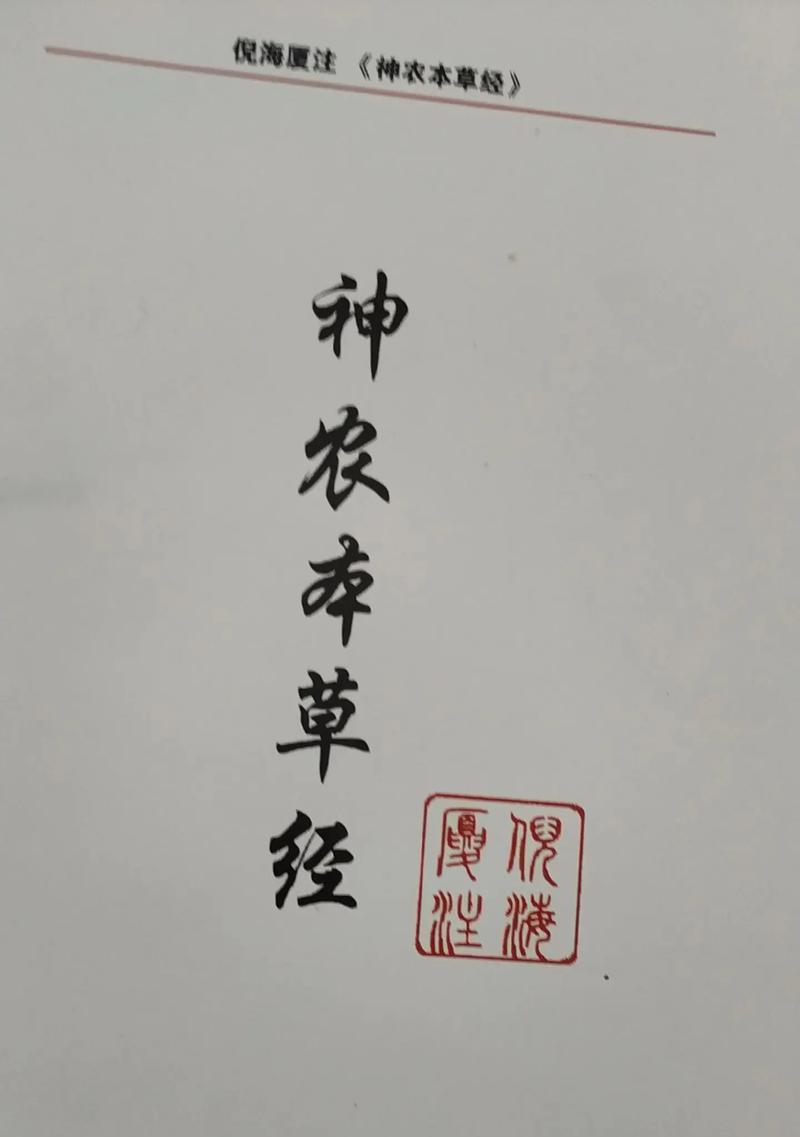 倪海厦注 《神农本草经》
神农本草经
倪海
厦注